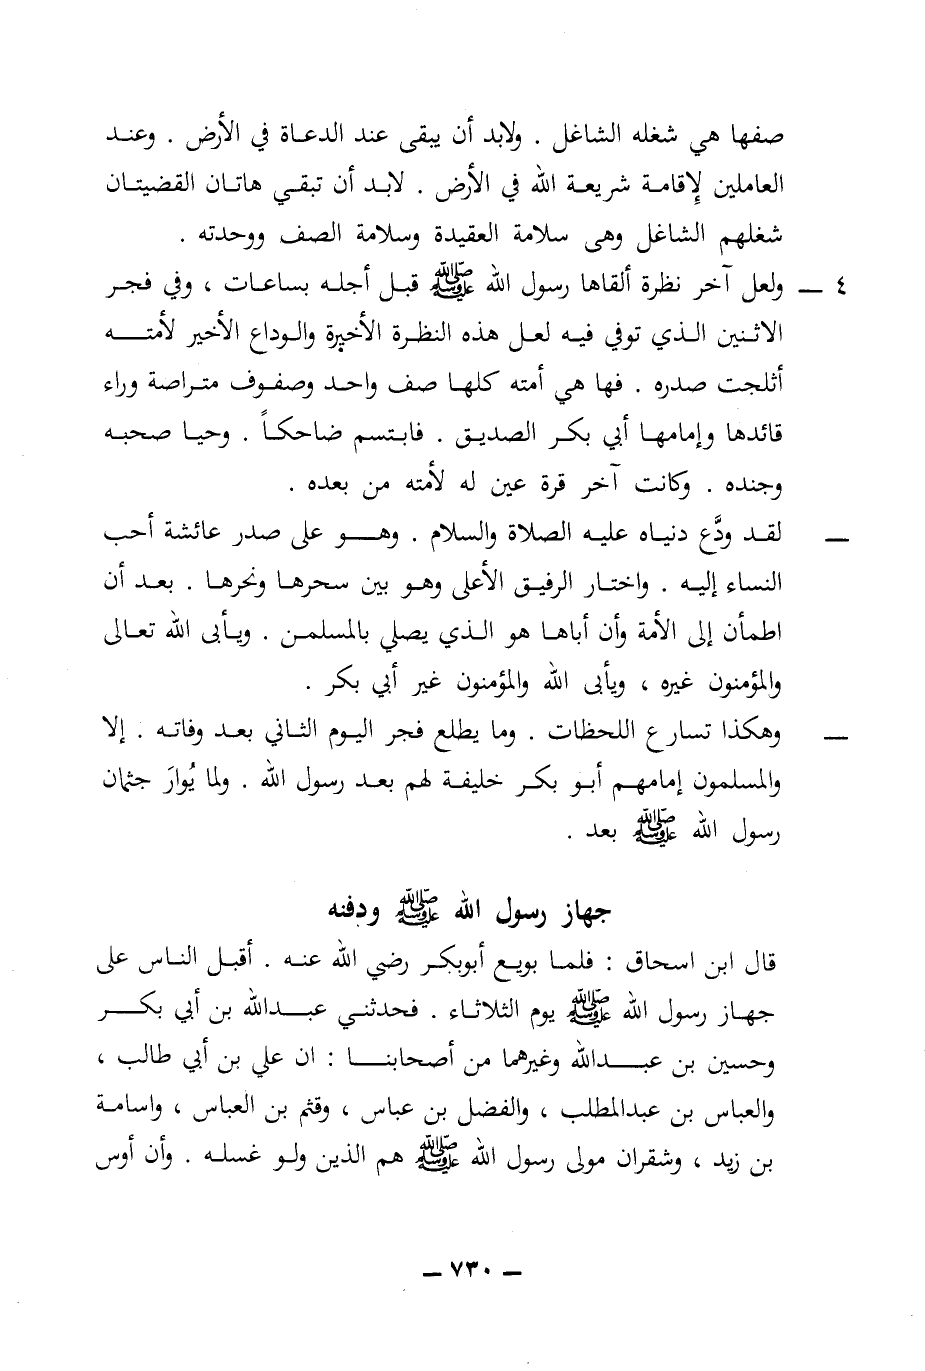 صفها هي شغله الشاغل . ولابد أن يبقى عند الدعاة في الأرض . وعند
العاملين لإقامة شريعة الله في الأرض . لابد أن تبقى هاتان القضيتان
شغلهم الشاغل وهى سلامة العقيدة وسلامة الصف ووحدته .
٤ — ولعل آخر نظرة ألقاها رسول الله ﷺ قبل أجله بساعات ، وفي فجر
الاثنين الذي توفي فيه لعل هذه النظرة الأخيرة والوداع الأخير لأمته
أثلجت صدره . فها هي أمته كلها صف واحد وصفوف متراصة وراء
قائدها وإمامها أبي بكر الصديق . فابتسم ضاحكاً . وحيا صحبه
وجنده . وكانت آخر قرة عين له لأمته من بعده .
— لقد ودَّع دنياه عليه الصلاة والسلام . وهو على صدر عائشة أحب
النساء إليه . واختار الرفيق الأعلى وهو بين سحرها ونحرها . بعد أن
اطمأن إلى الأمة وأن أباها هو الذي يصلي بالمسلمن . ويأبى الله تعالى
والمؤمنون غيره ، ويأبى الله والمؤمنون غير أبي بكر .
— وهكذا تسارع اللحظات . وما يطلع فجر اليوم الثاني بعد وفاته . إلا
والمسلمون إمامهم أبو بكر خليفة لهم بعد رسول الله . ولما يُوارَ جثمان
رسول الله ﷺ بعد .
جهاز رسول الله ﷺ ودفنه
قال ابن اسحاق : فلما بويع أبوبكر رضي الله عنه . أقبل الناس على
جهاز رسول الله ﷺ يوم الثلاثاء . فحدثني عبدالله بن أبي بكر
وحسين بن عبدالله وغيرهما من أصحابنا : ان علي بن أبي طالب ،
والعباس بن عبدالمطلب ، والفضل بن عباس ، وقثم بن العباس ، واسامة
بن زيد ، وشقران مولى رسول الله ﷺ هم الذين ولو غسله . وأن أوس
— ٧٣٠ —